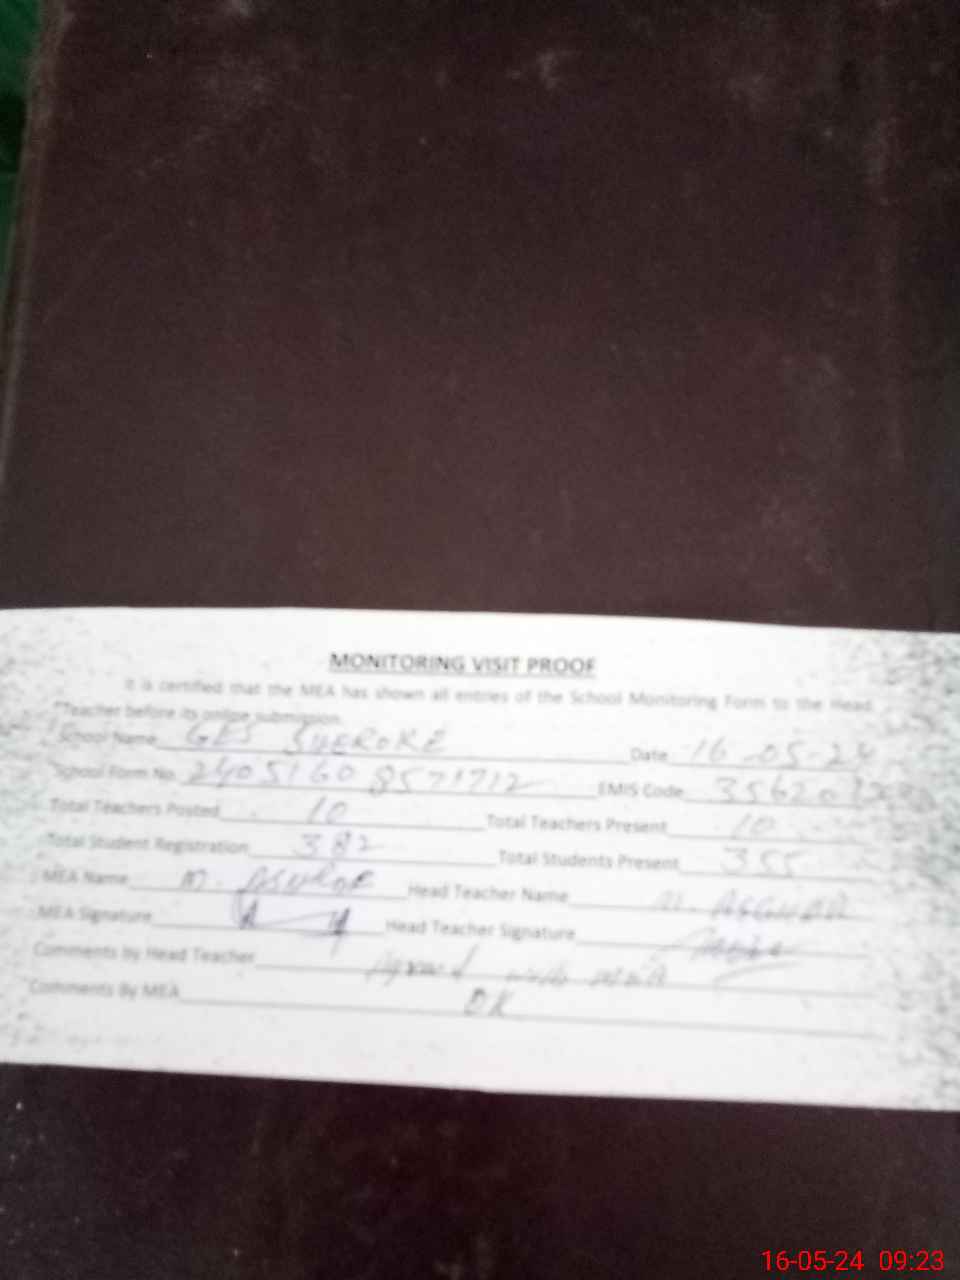 MONITORING VISIT PROOF
It is certified that the MEA has shown all entries of the School Monitoring Form to the Head
Teacher before its online submission.
School Name GES SHEROKE Date 16-05-24
School Form No. 2405160 8571712 EMIS Code 356201
Total Teachers Posted 10 Total Teachers Present 10
Total Student Registration 382 Total Students Present 355
MEA Name M. Head Teacher Name M. ASGHAR
MEA Signature Head Teacher Signature
Comments by Head Teacher Agreed with MEA
Comments By MEA OK
16-05-24 09:23